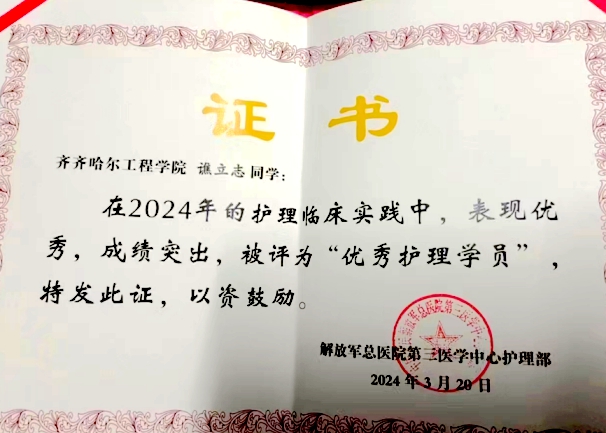 证 书
齐齐哈尔工程学院 谯立志同学：
在2024年的护理临床实践中，表现优
秀，成绩突出，被评为“优秀护理学员”，
特发此证，以资鼓励。
解放军总医院第三医学中心护理部
2024 年 3 月 20 日